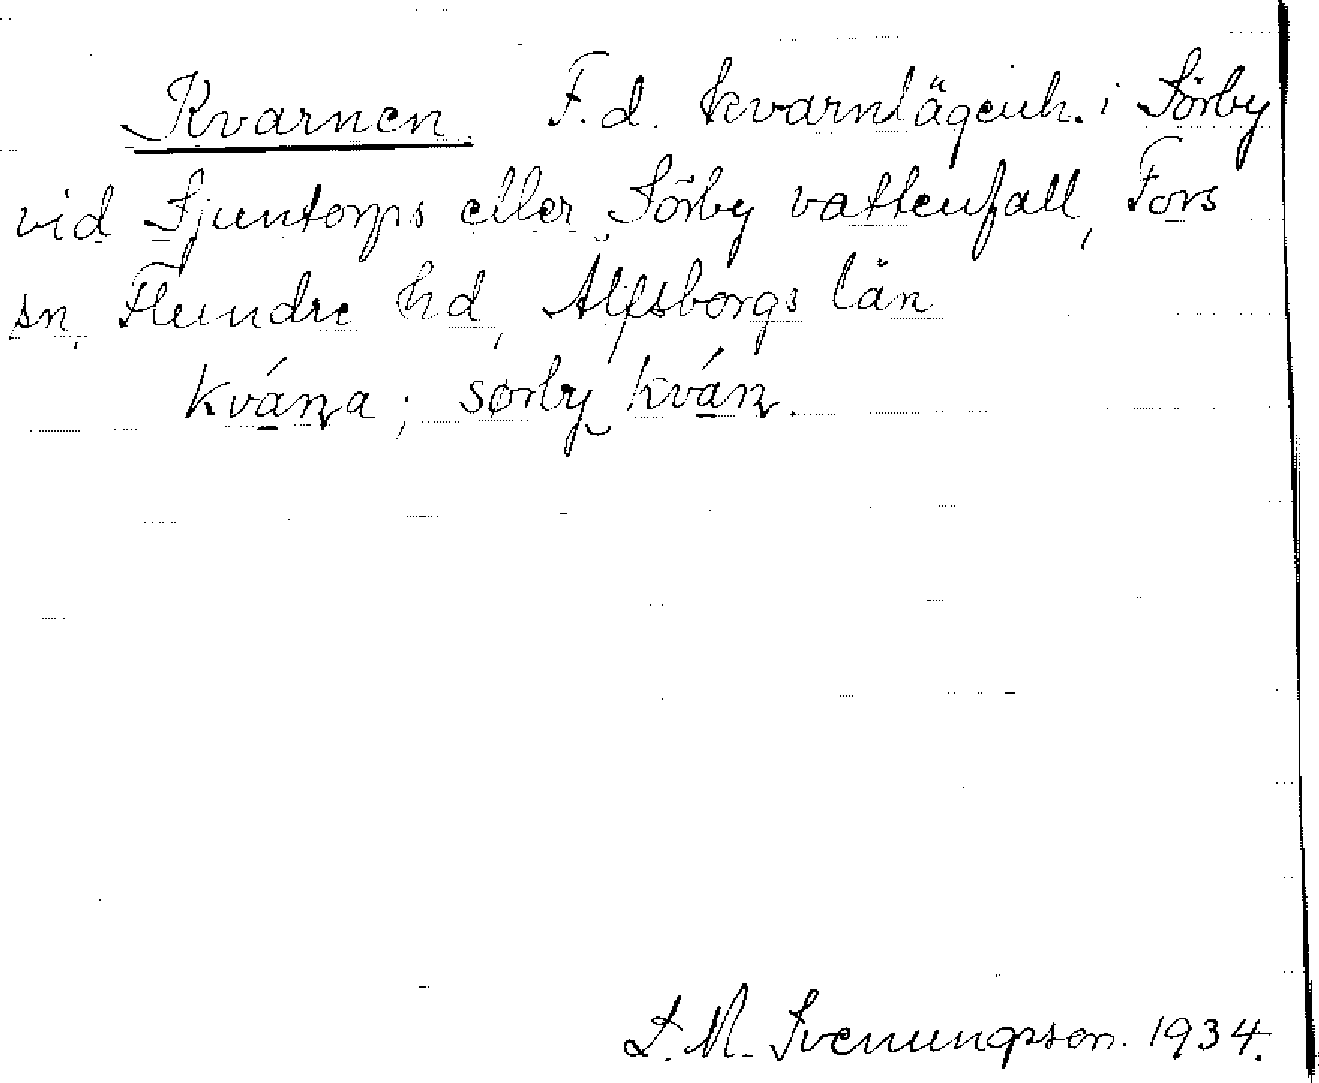 Kvarnen. F.d. kvarnlägenh. i Sörby
vid Sjuntorps eller Sörby vattenfall, Fors
sn, Flundre hd, Älfsborgs län
kvána; sørby kván.
S. M. Svenungsson. 1934.